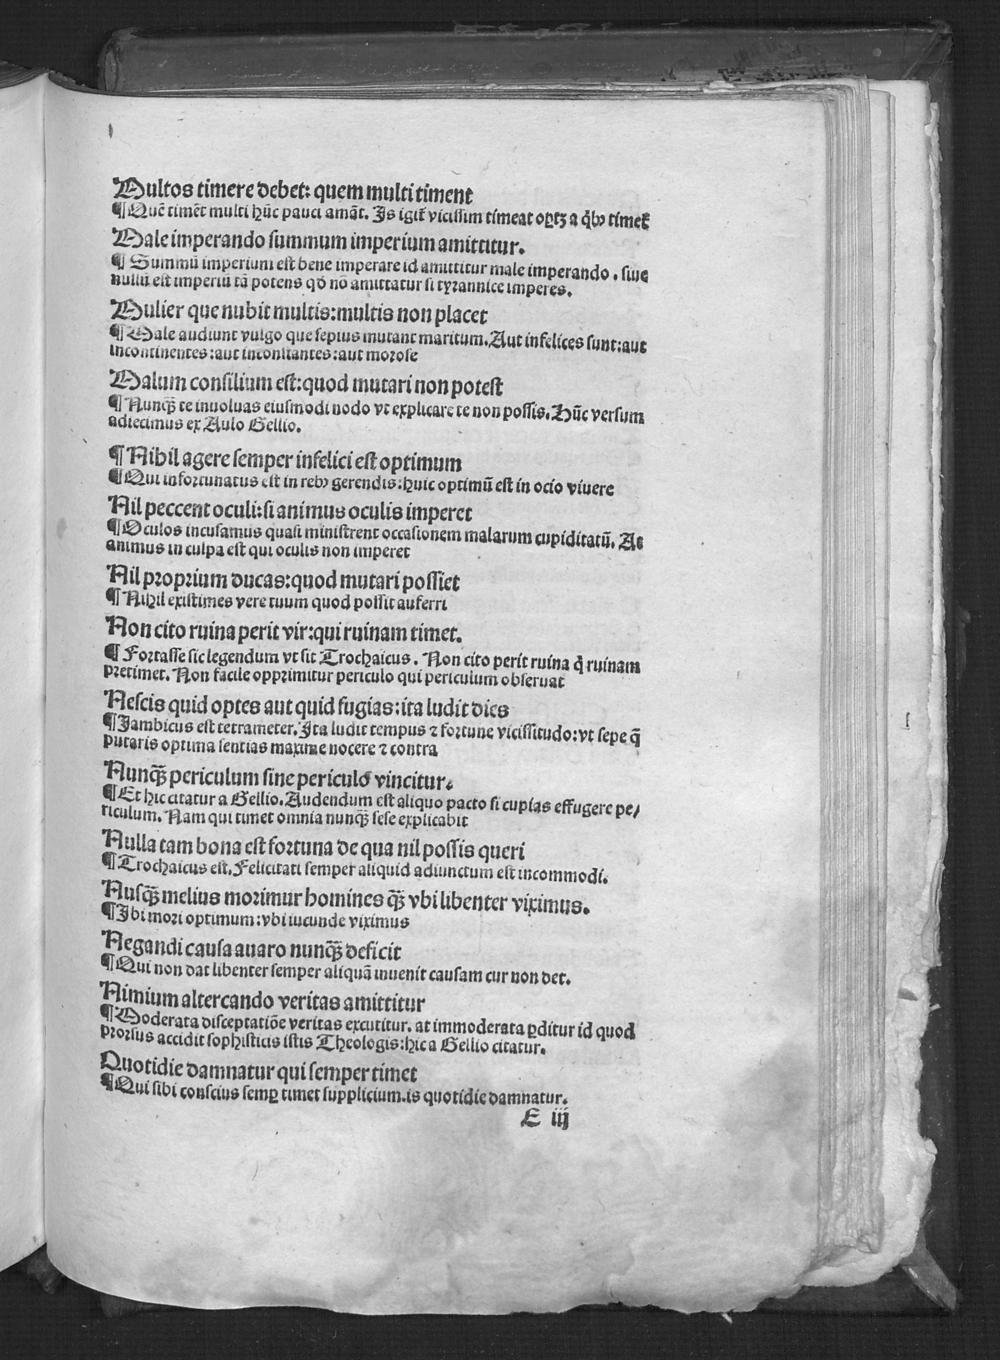 Multos timere debet: quem multi timent
¶ Quē timēt multi hūc pauci amāt. Is igit᷑ vicissim timeat oꝑtꝫ a q̇bꝰ timet᷑
Male imperando summum imperium amittitur.
¶ Summū imperium est bene imperare id amittitur male imperando . siue
nullū est imperiū tā potens qď nō amittatur si tyrannice imperes.
Mulier que nubit multis:multis non placet
¶ Male audiunt vulgo que sepius mutant maritum. Aut infelices sunt:aut
incontinentes:aut inconstantes:aut morose
Malum consilium est:quod mutari non potest
¶ Nunqȝ̄ te inuoluas eiusmodi nodo vt explicare te non possis. Hūc versum
adiecimus ex Aulo Gellio.
¶ Nihil agere semper infelici est optimum
¶ Qui infortunatus est in rebꝰ gerendis:huic optimū est in ocio viuere
Nil peccent oculi:si animus oculis imperet
¶ Oculos incusamus quasi ministrent occasionem malarum cupiditatū. At
animus in culpa est qui oculis non imperet
Nil proprium ducas:quod mutari possiet
¶ Nihil existimes vere tuum quod possit auferri
Non cito ruina perit vir:qui ruinam timet.
¶ Fortasse sic legendum vt sit Trochaicus . Non cito perit ruina q̇ ruinam
pretimet. Non facile opprimitur periculo qui periculum obseruat
Nescis quid optes aut quid fugias:ita ludit dies
¶ Iambicus est tetrameter. Ita ludit tempus ⁊ fortune vicissitudo:vt sepe q̄
putaris optima sentias maxime nocere ⁊ contra
Nunqȝ̄ periculum sine periculo vincitur.
¶ Et hic citatur a Gellio. Audendum est aliquo pacto si cupias effugere pe/
riculum. Nam qui timet omnia nunqȝ̄ sese explicabit
Nulla tam bona est fortuna de qua nil possis queri
¶ Trochaicus est. Felicitati semper aliquid adiunctum est incommodi.
Nusqȝ̄ melius morimur homines qȝ̄ vbi libenter viximus.
¶ Ibi mori optimum:vbi iucunde viximus
Negandi causa auaro nunqȝ̄ deficit
¶ Qui non dat libenter semper aliquā inuenit causam cur non det.
Nimium altercando veritas amittitur
¶ Moderata disceptatiōe veritas excutitur. at immoderata ꝑditur id quod
prorsus accidit sophisticis istis Theologis:hic a Gellio citatur.
Quotidie damnatur qui semper timet
¶ Qui sibi conscius semꝑ timet supplicium.is quotidie damnatur.
E iij